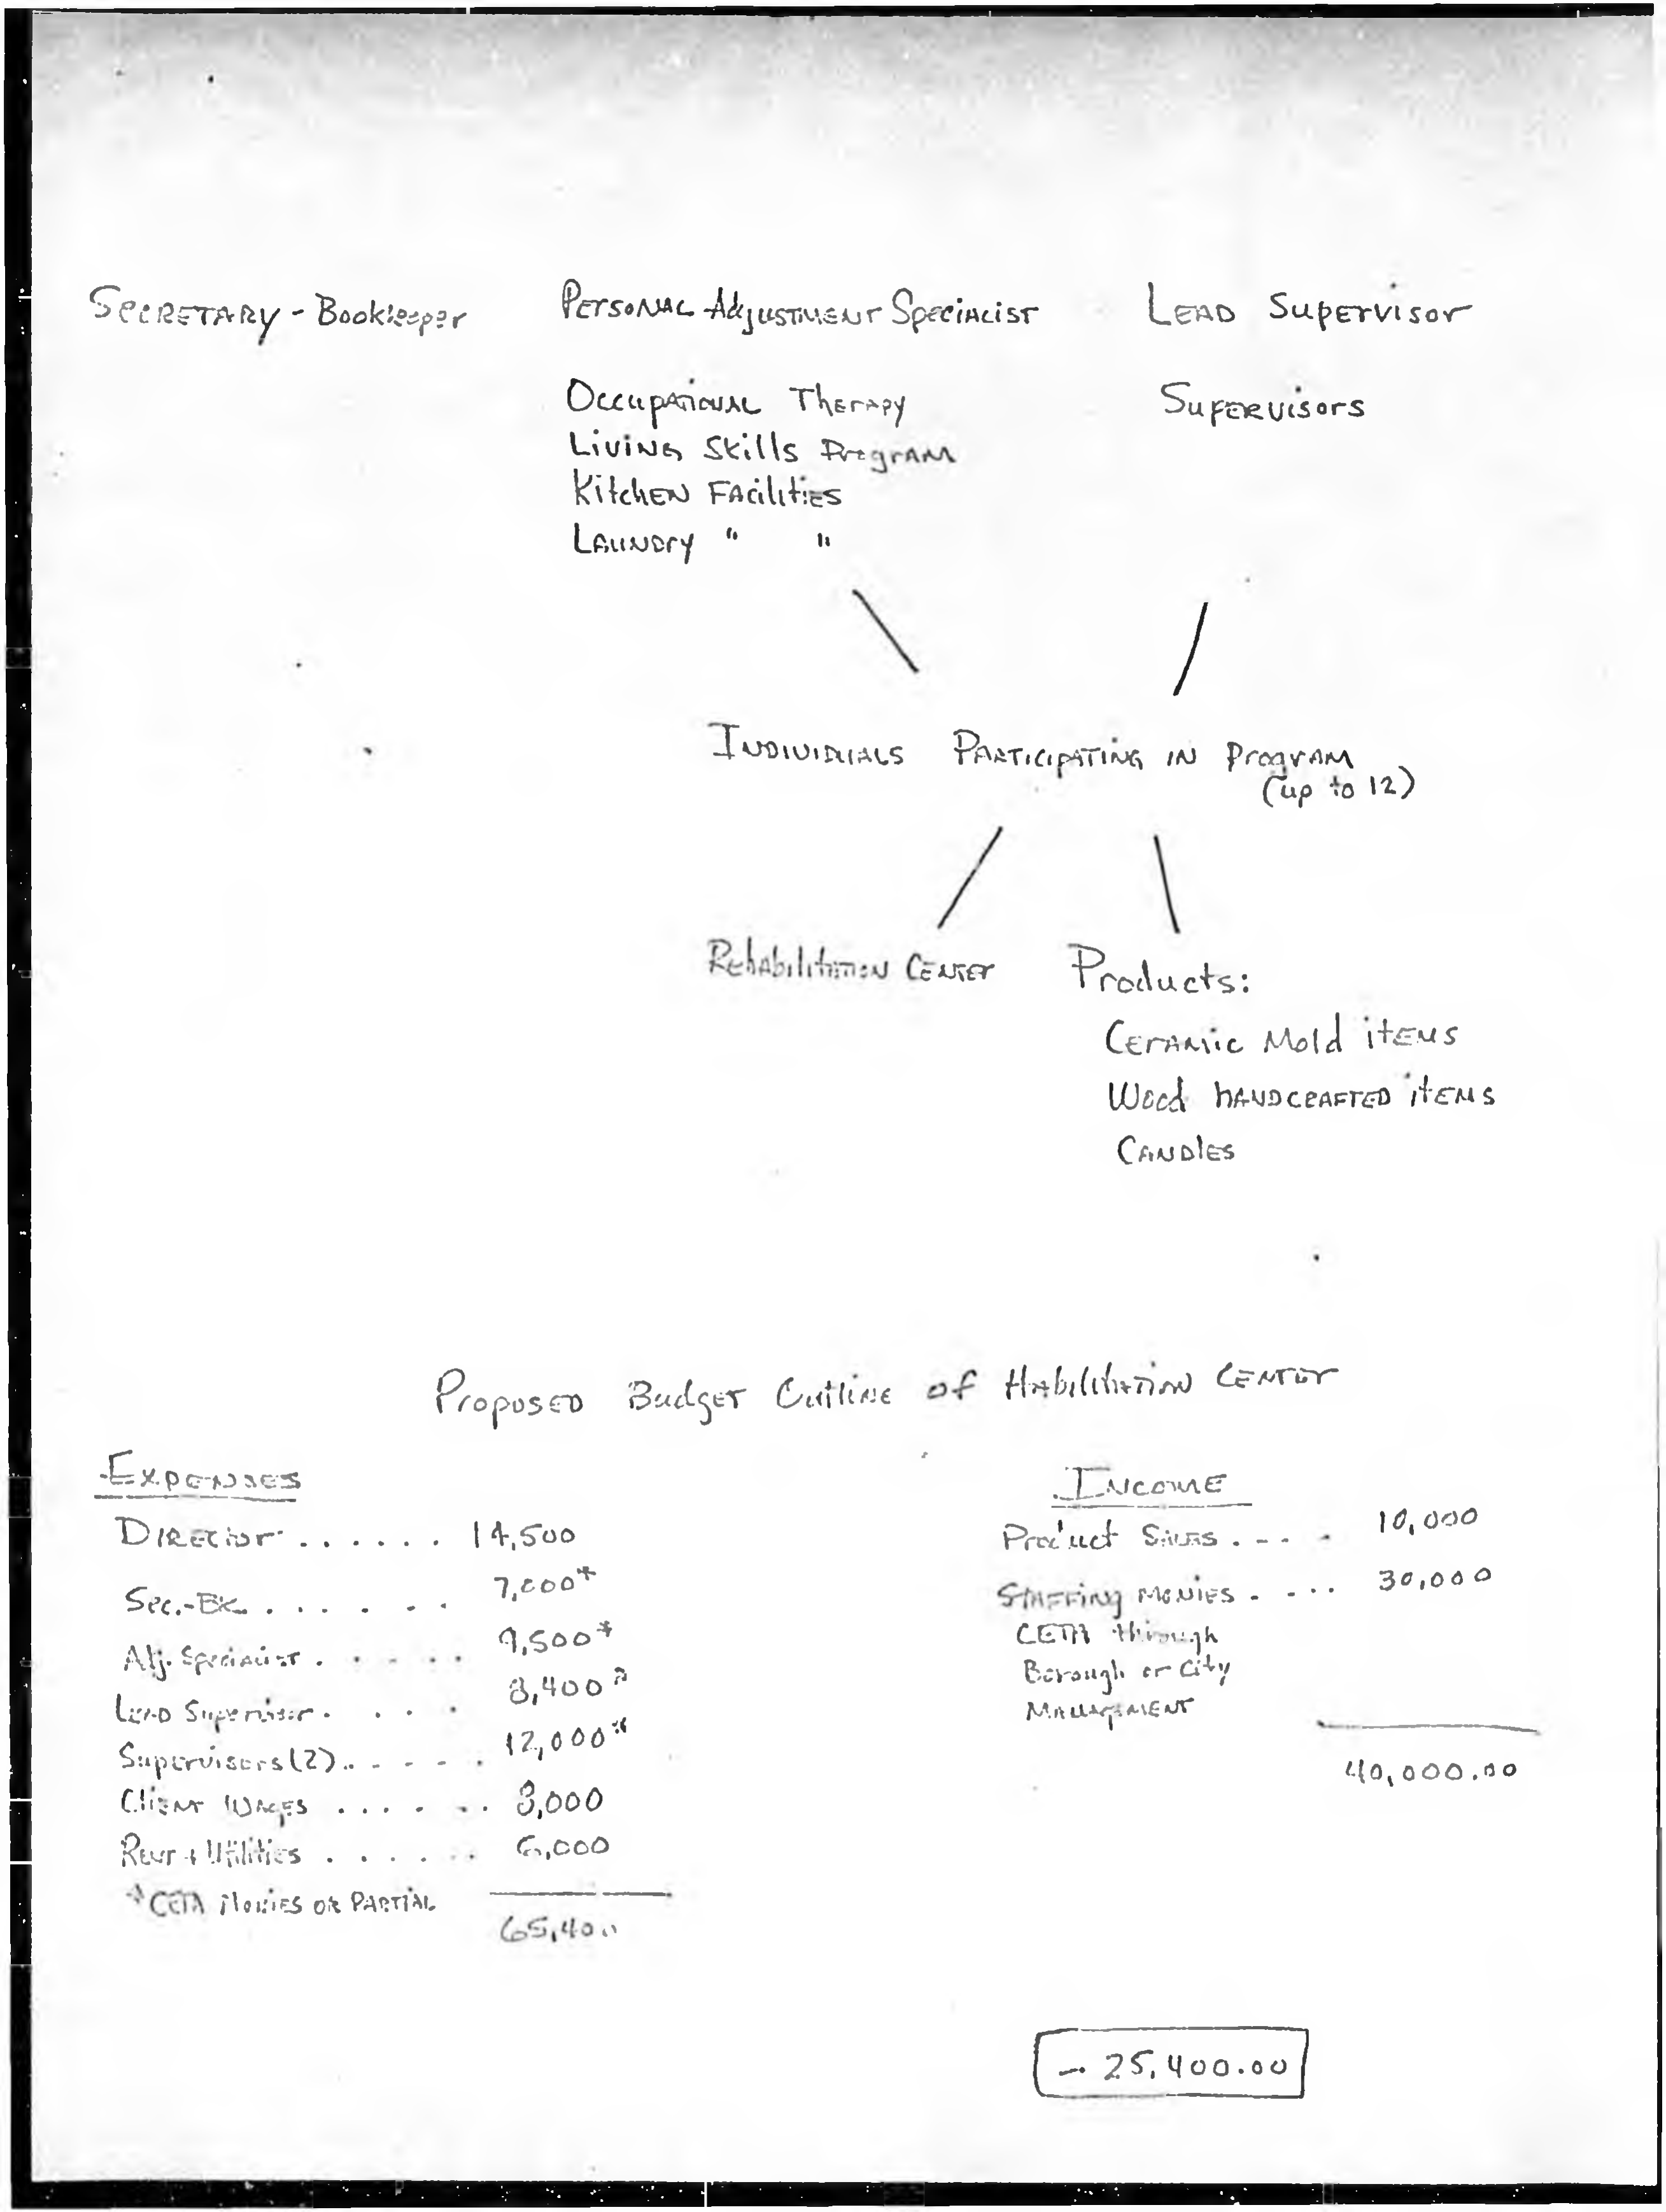 Secretary - Bookkeeper
Personal Adjustment Specialist
Lead Supervisor
Occupational Therapy
Living Skills Program
Kitchen Facilities
Laundry " "
Supervisors
Individials Participating in Program
(up to 12)
Rehabilitation Center
Products:
Ceramic Mold items
Wood handcrafted items
Candles
Proposed Budget Outline of Habilitation Center
Expenses
Director . . . . . . 14,500
Sec.-Bk. . . . . . . . 7,000*
Adj. Specialist . . . . . 9,500*
Lead Supervisor . . . . 8,400*
Supervisors (2) . . . . . 12,000*
Client Wages . . . . . . 8,000
Rent + Utilities . . . . . . 6,000
*CETA Monies or Partial
65,400
Income
Product Sales . . . . 10,000
Staffing Monies . . . . 30,000
CETA through
Borough or City
Management
40,000.00
- 25,400.00